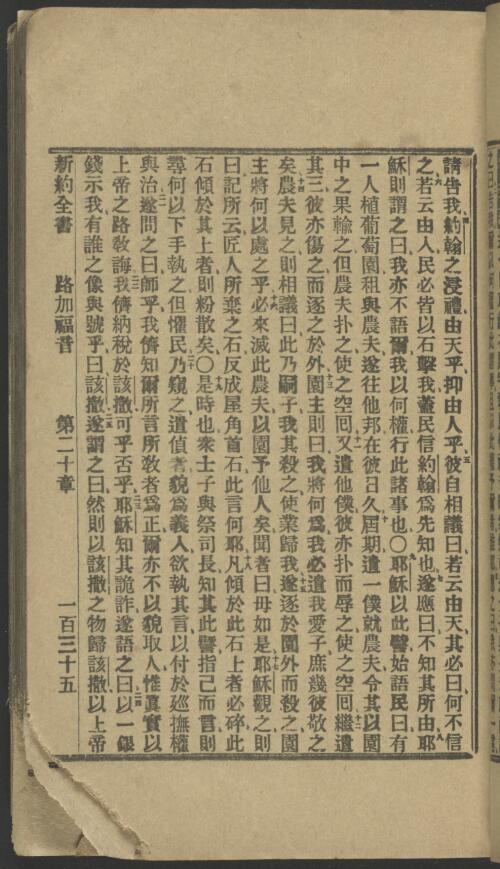 請告我約翰之浸禮由天乎抑由人乎彼自相議曰若云由天其必曰何不信
之若云由人民必皆以石擊我蓋民信約翰爲先知也遂應曰不知其所由耶
穌則謂之曰我亦不語爾我以何權行此諸事也〇耶穌以此譬始語民曰有
一人植葡萄園租與農夫遂往他邦在彼日久屆期遣一僕就農夫令其以園
中之果輸之但農夫扑之使之空囘又遣他僕彼亦扑而辱之使之空囘繼遣
其三彼亦傷之而逐之於外園主則曰我將何爲我必遣我愛子庶幾彼敬之
矣農夫見之則相議曰此乃嗣子我其殺之使業歸我遂逐於園外而殺之園
主將何以處之乎必來滅此農夫以園予他人矣聞者曰毋如是耶穌觀之則
曰記所云匠人所棄之石反成屋角首石此言何耶凡傾於此石上者必碎此
石傾於其上者則粉散矣〇是時也衆士子與祭司長知其此譬指己而言則
尋何以下手執之但懼民乃窺之遣偵者貌爲義人欲執其言以付於巡撫權
與治遂問之曰師乎我儕知爾所言所敎者爲正爾亦不以貌取人惟眞實以
上帝之路敎誨我儕納稅於該撒可乎否乎耶穌知其詭詐遂語之曰以一銀
錢示我有誰之像與號乎曰該撒遂謂之曰然則以該撒之物歸該撒以上帝
新約全書 路加福音 第二十章 一百三十五